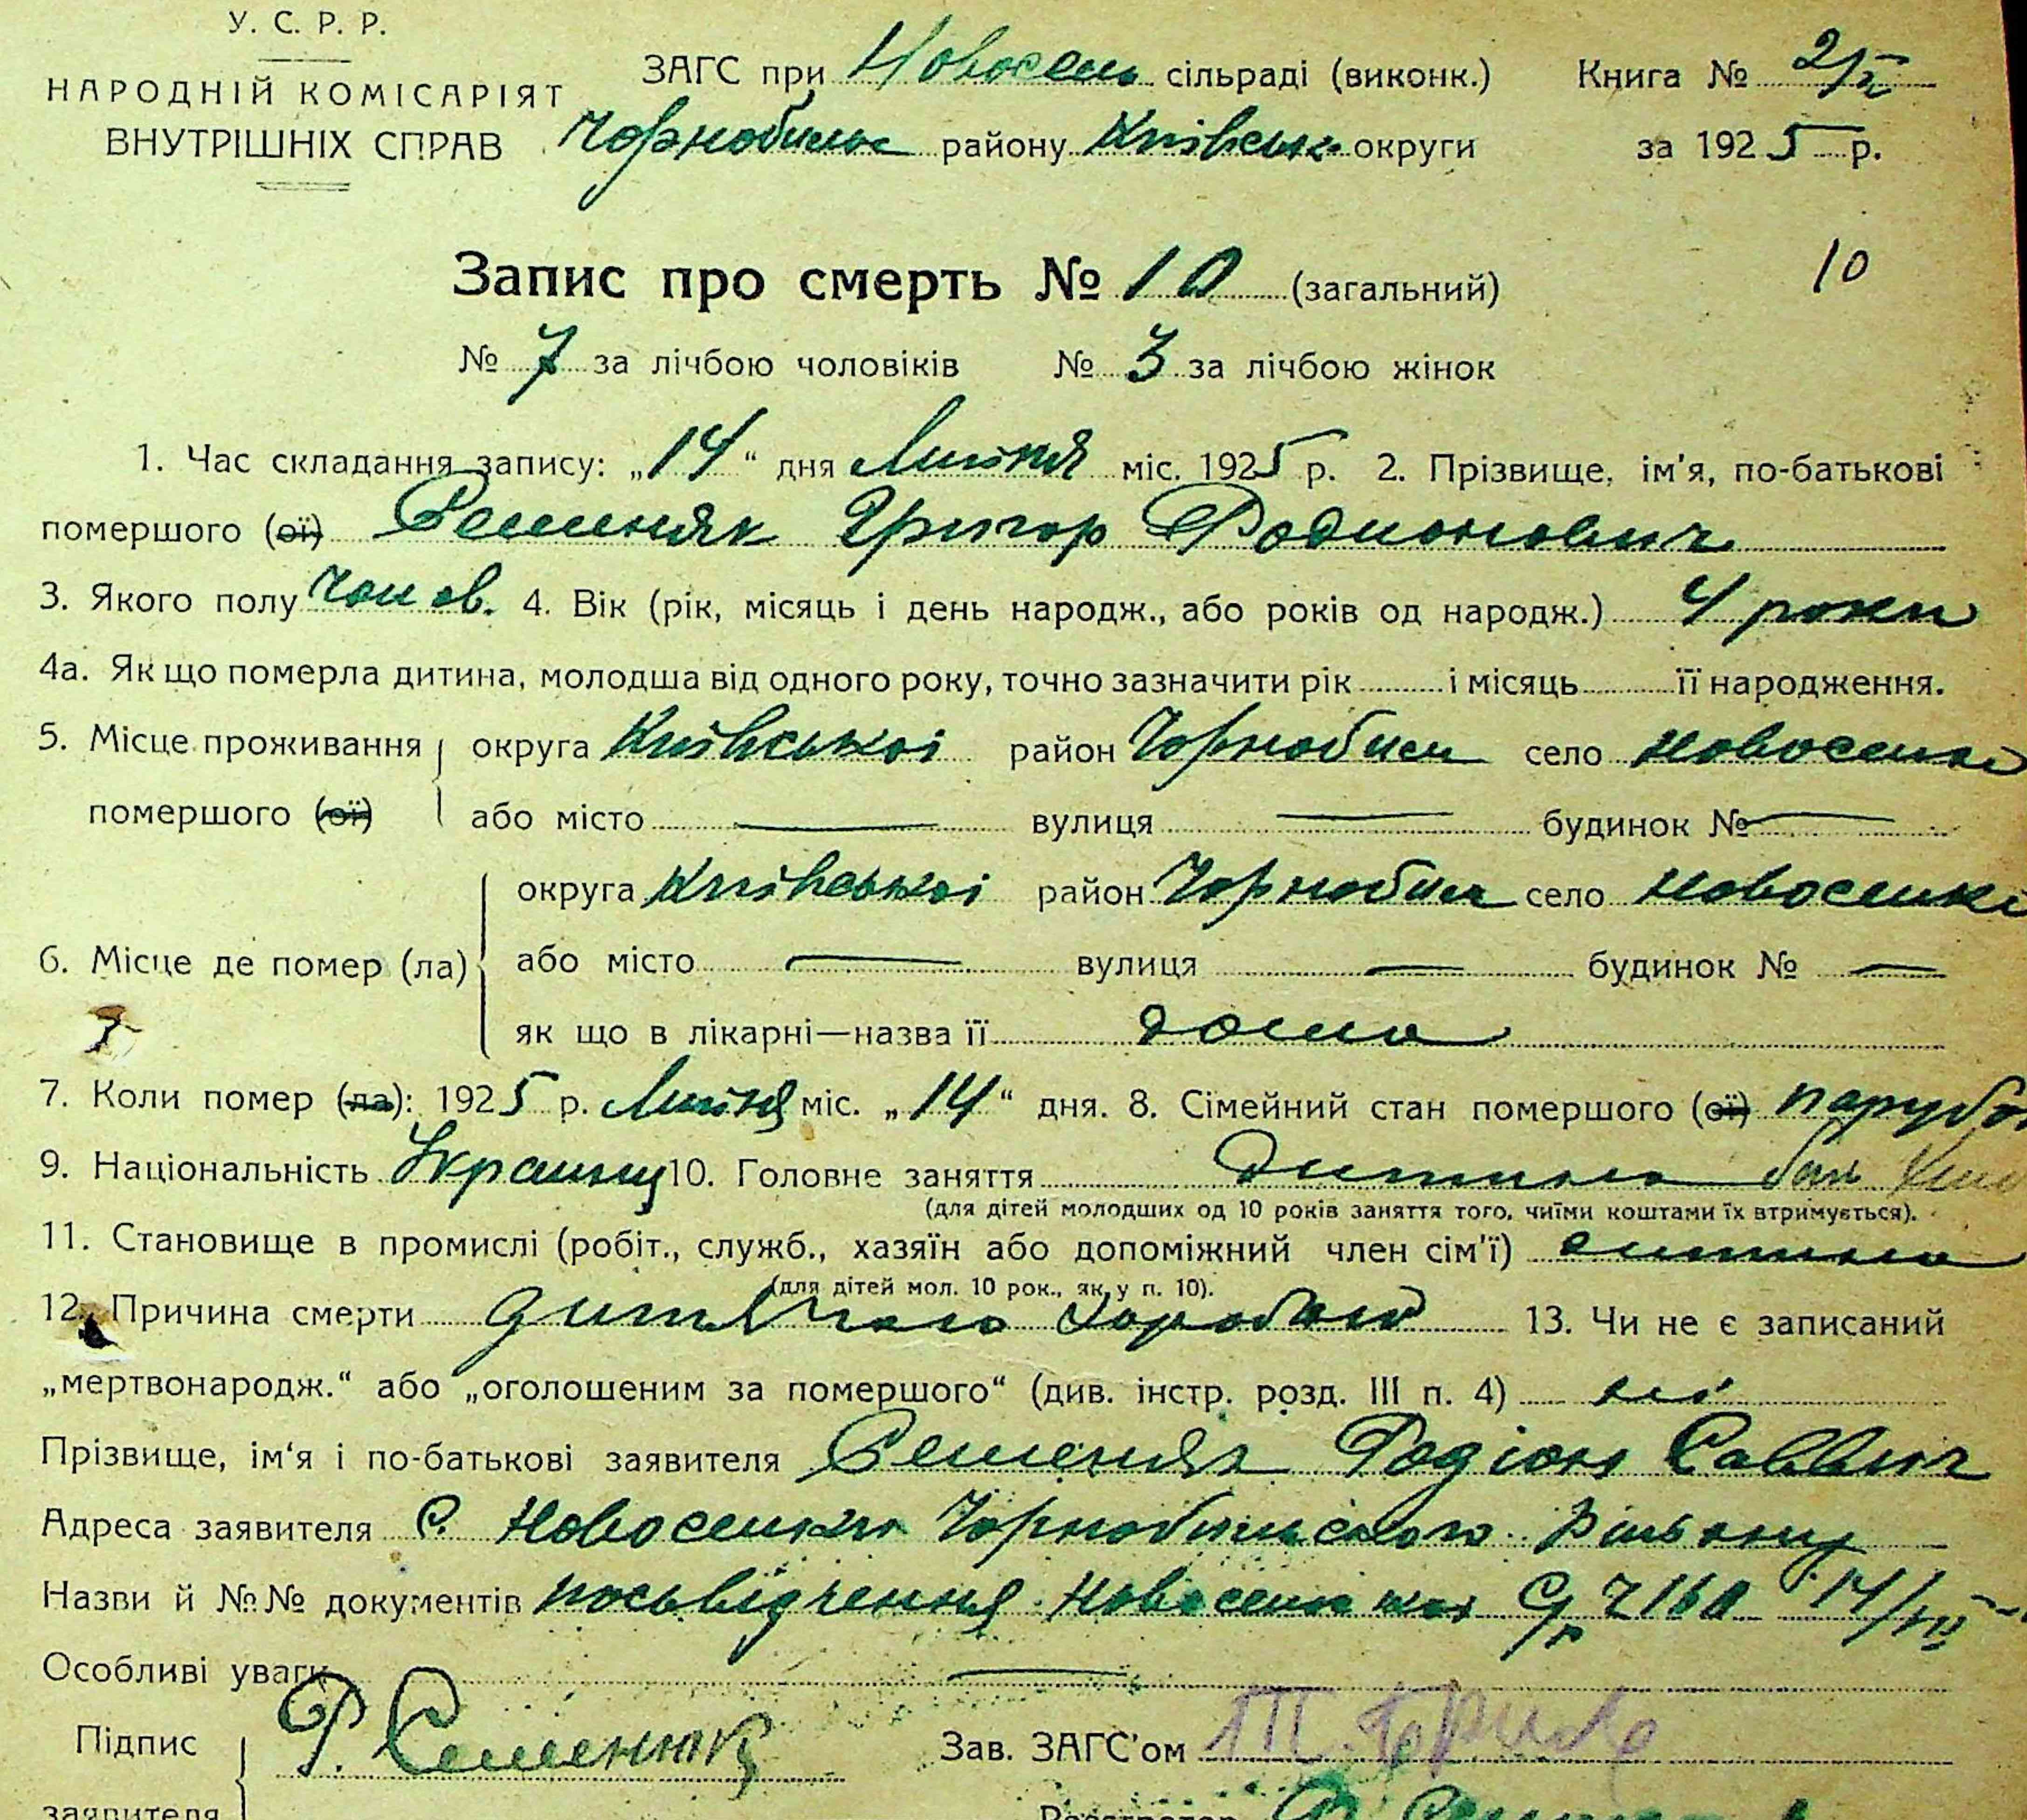 У. С. Р. Р.
НАРОДНІЙ КОМІСАРІЯТ
ВНУТРІШНІХ СПРАВ
ЗАГС при Новосель сільраді (виконк.) Книга № 2/
Чорнобильс району Київськ округи за 1925 р.
10
Запис про смерть № 10 (загальний)
№ 7 за лічбою чоловіків № 3 за лічбою жінок
1. Час складання запису: „14“ дня Липня міс. 1925 р. 2. Прізвище, ім'я, по-батькові
помершого (ої) Семеняк Григор Родионович
3. Якого полу чолов. 4. Вік (рік, місяць і день народж., або років од народж.) 4 роки
4а. Як що померла дитина, молодша від одного року, точно зазначити рік і місяць її народження.
5. Місце проживання округа Київської район Чорнобил село Новоселки
помершого (ої) або місто — вулиця — будинок № —
округа Київської район Чорнобил село Новоселки
6. Місце де помер (ла) або місто — вулиця — будинок № —
як що в лікарні—назва її дома
7. Коли помер (ла): 1925 р. Липня міс. „14“ дня. 8. Сімейний стан помершого (ої) парубо
9. Національність Украинц 10. Головне заняття Дитина
(для дітей молодших од 10 років заняття того, чиїми коштами їх втримується).
11. Становище в промислі (робіт., служб., хазяїн або допоміжний член сім'ї) дитина
(для дітей мол. 10 рок., як у п. 10).
12. Причина смерти дитяча хороба 13. Чи не є записаний
„мертвонародж.“ або „оголошеним за помершого“ (див. інстр. розд. III п. 4) ні
Прізвище, ім‘я і по-батькові заявителя Семеняк Родіон Саввич
Адреса заявителя С. Новоселки Чорнобильского Району
Назви й №№ документів посьвідчення Новоселк С/р 14/VII
Особливі уваги —
Підпис Р. Семенюк Зав. ЗАГС'ом
заявителя Реєстратор